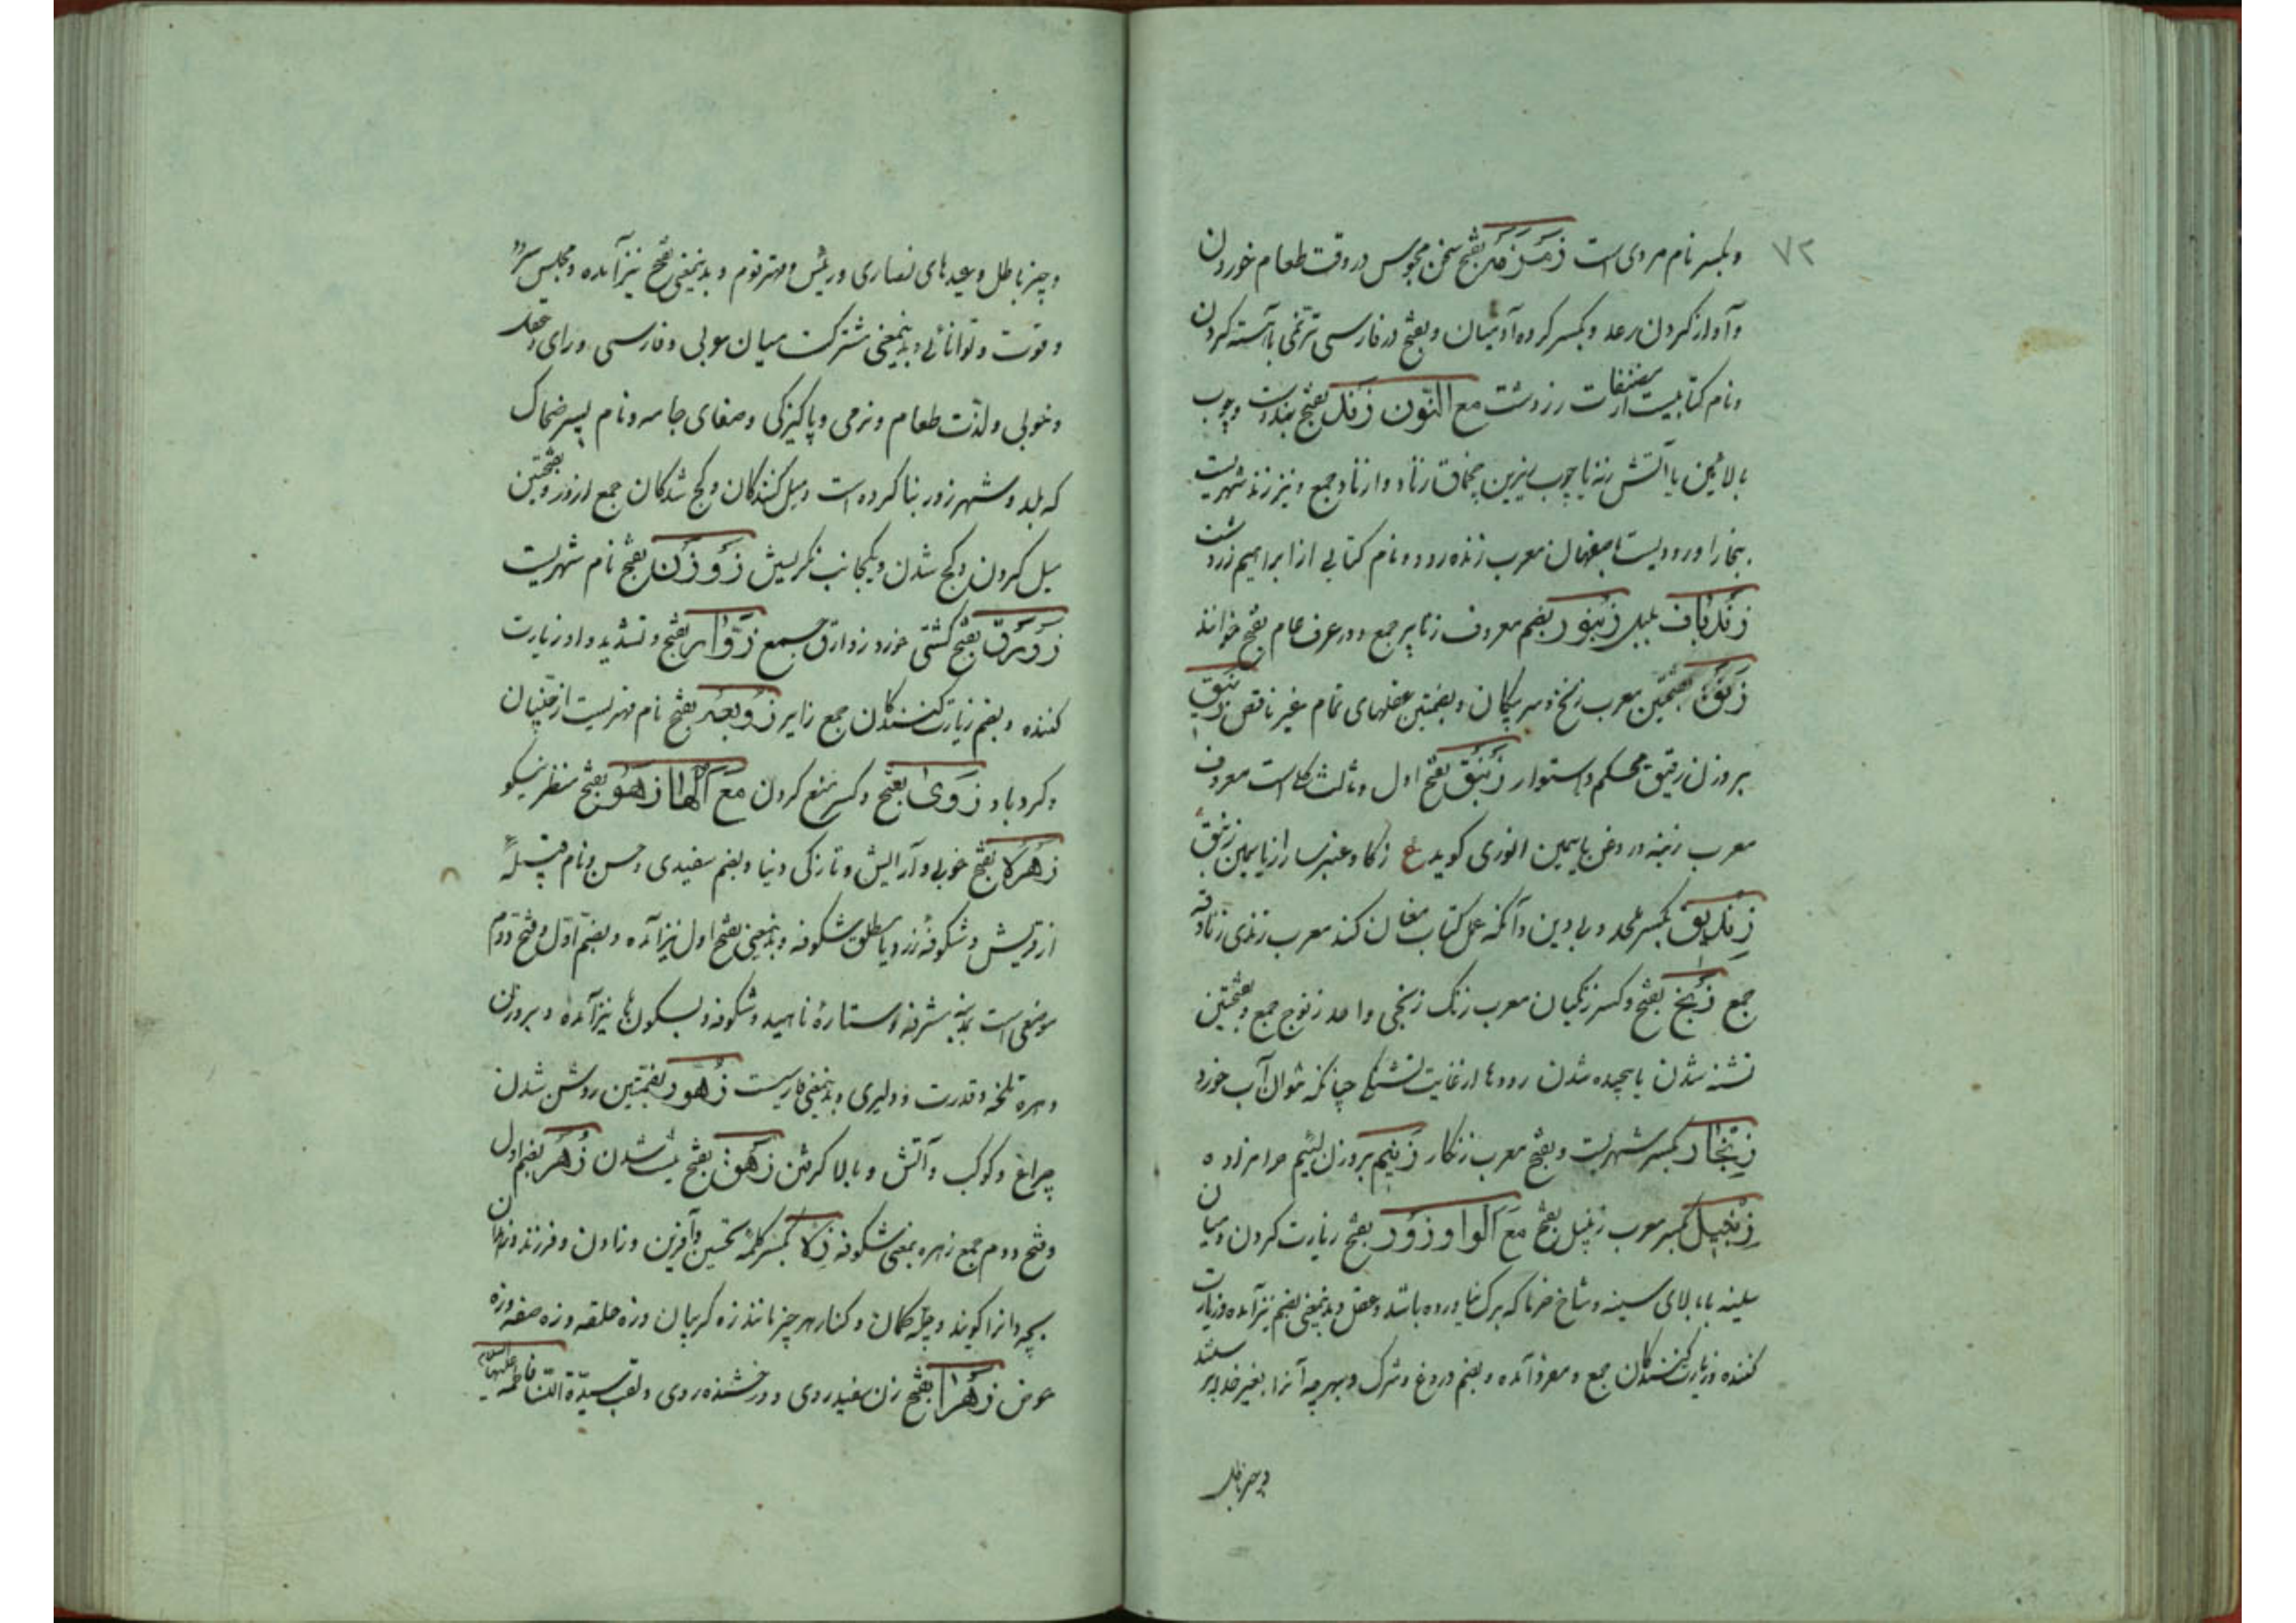 ۷۲
وبکسر نام مردی است زَمْزَمَه بفتح سخن مجوس در وقت طعام خوردن
و آواز کردن رعد و بکسر کرده آدمیان و بفتح در فارسی ترنمی باآهسته کردن
ونام کتابیست از مصنفات زردشت مع النّون زَند بفتح بند دست و چوب
بالائین یا آتش زنه یا چوب زیرین چخماق زناد و ازناد جمع و نیز زند شهریست
بخارا و رودیست باصفهان معرب زنده رود و نام کتابی از ابراهیم زردشت
زَندباف بلبل زَنبُور بضم معروف زنابیر جمع و در عرف عام بفتح خوانند
زَنَق بفتحتین معرب زنخ و سر پیکان و بضمتین عقلهای تمام غیر ناقص زَنیق
بروزن رفیق محکم و استوار زَنبَق بفتح اول و ثالث کلیست معروف
معرب زنبه و روغن یاسمین انوری کوید ع زکا و عنبر سارا زیاسمین زنبق
زِندیق بکسر ملحد و بی دین و آنکه عمل کتاب مغان کند معرب زندی زنادقه
جمع زَنج بفتح و کسر زنکیان معرب زنک زنجی واحد زنوج جمع و بفتحتین
تشنه شدن یا پیچیده شدن رودها از غایت تشنکی چنانکه نتوان آب خورد
زِنجَار بکسر شهریست و بفتح معرب زنکار زَنیم بروزن لئیم حرامزاده
زِنجیل بکسر معرب زنپیل بفتح مع الواو زَوْر بفتح زیارت کردن و میان
سینه یا بالای سینه و شاخ خرما که برک نیاورده باشد و عقل و بدینمعنی بضم نیز آمده و زیارت
کننده و زیارت کنندکان جمع و مفرد آمده و بضم دروغ و شرک و بهرچه آنرا بغیر خدا پرستند
و چیز باطل
و چیز باطل و عیدهای نصاری و رئیس و مهتر قوم و بدینمعنی بفتح نیز آمده و مجلس سرود
و قوت و توانائی و بدینمعنی مشترکست میان عربی و فارسی و رای و عقل
و خوبی و لذّت طعام و نرمی و پاکیزکی و صفای جامه و نام پسر ضحاک
که بلد و شهر زور بنا کرده است و میل کنندکان و کج شدکان جمع ازور و بفتحتین
میل کردن و کج شدن و بیکجانب نکریستن زَوْزَن بفتح نام شهریست
زَوْرَق بفتح کشتی خورد زوارق جمع زَوَّار بفتح و تشدید واو زیارت
کننده و بضم زیارت کنندکان جمع زایر زَوبَعَه بفتح نام مهتریست از جنّیان
و کردباد زَوَی بفتح و کسر منع کردن مع الها زَهْو بفتح منظر نیکو
زَهْره بفتح خوبی و آرایش و تازکی دنیا و بضم سفیدی و حسن و نام قبیلهٔ
از قریش و شکوفهٔ زرد یا مطلق شکوفه و بدینمعنی بفتح اول نیز آمده و بضمّ اوّل و فتح دوّم
موضعی است بمدینه مشرفه و ستارهٔ ناهید و شکوفه و بسکون ها نیز آمده و بروزن
بهره تلخه و قدرت و دلیری و بدینمعنی فارسیست زُهُور بضمتین روشن شدن
چراغ و کوکب و آتش و بالا کرفتن زَهَق بفتح نیست شدن زُهَر بضم اول
و فتح دوم جمع زهره بمعنی شکوفه زِه بکسر کلمهٔ تحسین و آفرین و زادن و فرزند و زهدان
بچه دانرا کویند و چلهٔ کمان و کنار هر چیز مانند زه کریبان و زه حلقه و زه صفه و زه
حوض زَهْرَا بفتح زن سفید روی و درخشنده روی و لقب سیّدة النّسا فاطمه علیها السلام